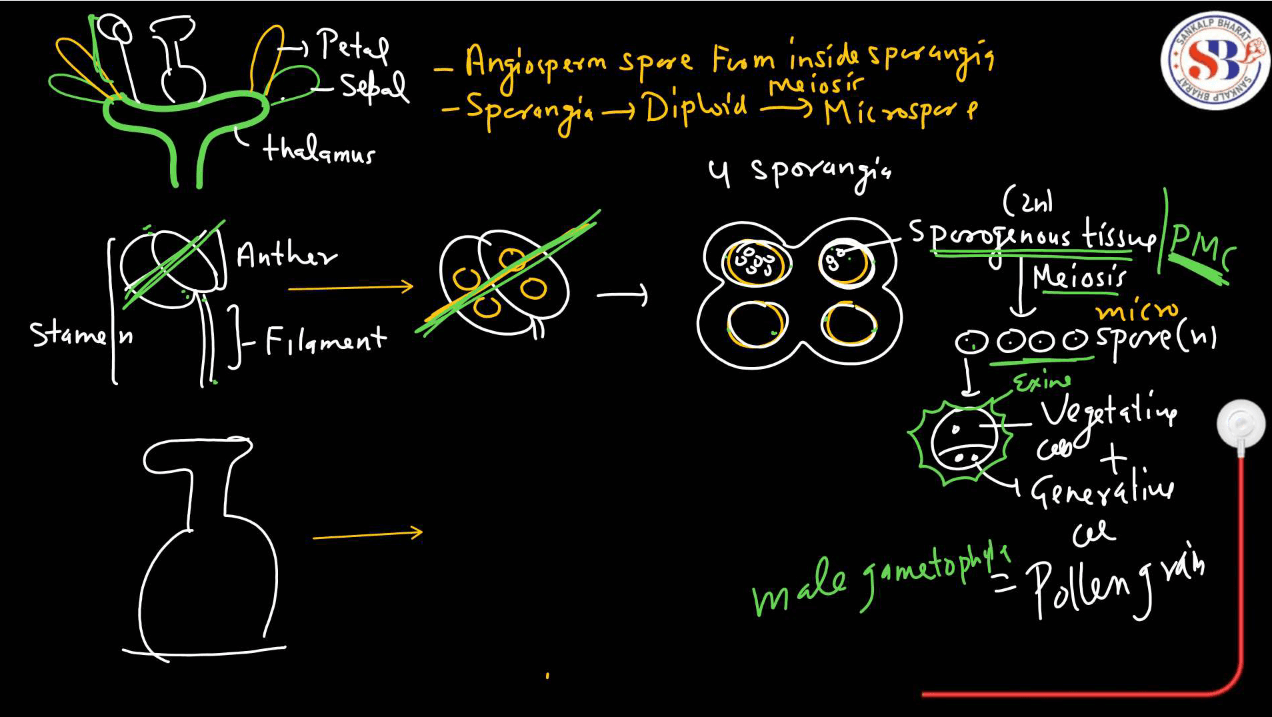 Petal
Sepal
thalamus
- Angiosperm spore From inside sporangia
- Sporangia → Diploid Meiosis → Microspore
4 sporangia
(2n)
Sporogenous tissue / PMC
Meiosis
micro
spore(n)
Exine
Vegetative
cell
+
Generative
cell
male gametophyte = Pollen grain
Anther
Stamen
Filament
SANKALP BHARAT
SB
SANKALP BHARAT